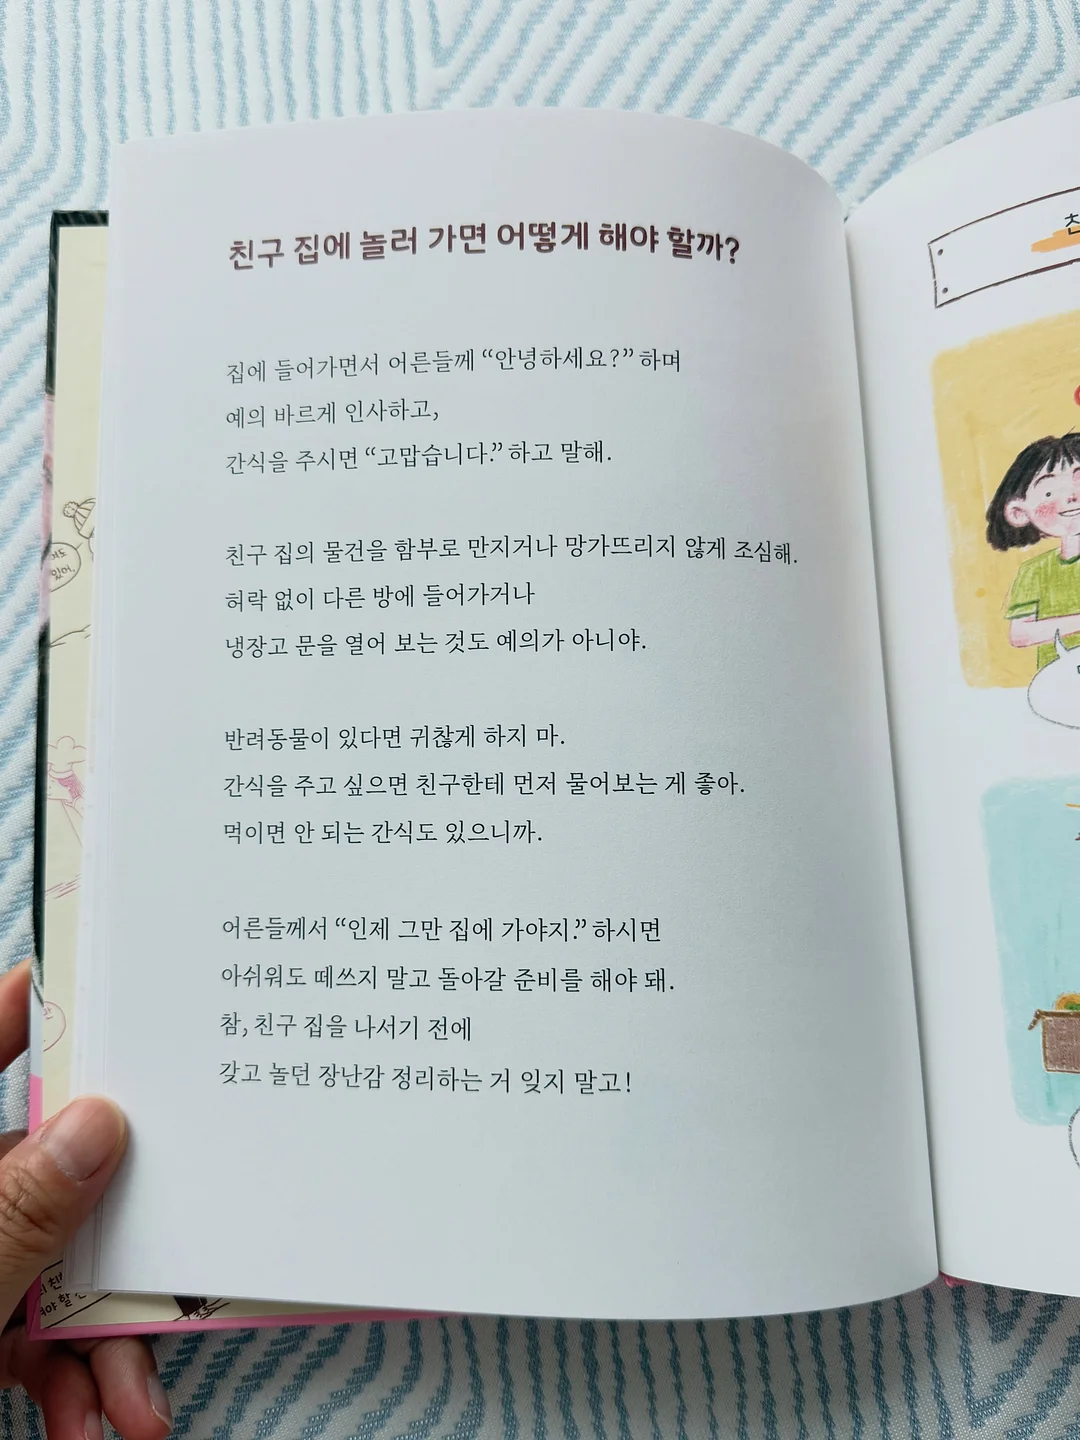 친구 집에 놀러 가면 어떻게 해야 할까?
집에 들어가면서 어른들께 “안녕하세요?” 하며
예의 바르게 인사하고,
간식을 주시면 “고맙습니다.” 하고 말해.
친구 집의 물건을 함부로 만지거나 망가뜨리지 않게 조심해.
허락 없이 다른 방에 들어가거나
냉장고 문을 열어 보는 것도 예의가 아니야.
반려동물이 있다면 귀찮게 하지 마.
간식을 주고 싶으면 친구한테 먼저 물어보는 게 좋아.
먹이면 안 되는 간식도 있으니까.
어른들께서 “인제 그만 집에 가야지.” 하시면
아쉬워도 떼쓰지 말고 돌아갈 준비를 해야 돼.
참, 친구 집을 나서기 전에
갖고 놀던 장난감 정리하는 거 잊지 말고!
있어.